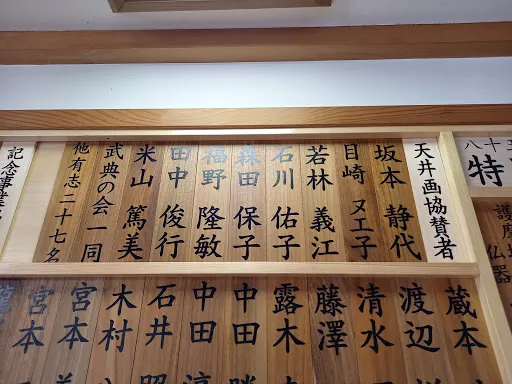 八十
特
護摩
仏器
天井画協賛者
坂本 静代
目崎 ヌエ子
若林 義江
石川 佑子
森田 保子
福野 隆敏
田中 俊行
米山 篤美
武典の会一同
他有志二十七名
記念事業
蔵本
渡辺
清水
藤澤
露木
中田
中田
石井
木村
宮本
宮本